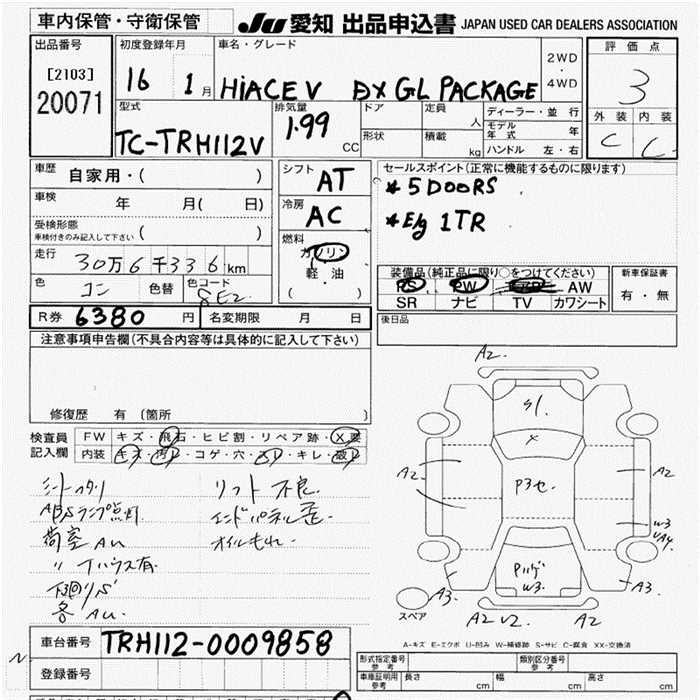 車内保管・守衛保管
JU 愛知 出品申込書 JAPAN USED CAR DEALERS ASSOCIATION
出品番号
[2103]
20071
初度登録年月
16 1月
車名・グレード
HIACE V DX GL PACKAGE
2WD
・
4WD
評価点
3
外装 内装
C C
型式
TC-TRH112V
排気量
1.99 CC
ドア
形状
定員
人
積載
kg
ディーラー・並行
モデル年式 年
ハンドル 左・右
車歴 自家用・( )
車検 年 月( 日)
受検形態
車検付きのみ記入して下さい ( )
走行 30万6千336km
色 コン 色替 色コード 8E2
シフト AT
冷房 AC
燃料
ガソリン
軽・油
( )
セールスポイント(正常に機能するものに限ります)
* 5 DOORS
* E/g 1TR
装備品(純正品に限り○をつけてください)
PS PW AW
SR ナビ TV カワシート
新車保証書
有・無
R券 6380 円 名変期限 月 日
後日品
注意事項申告欄(不具合内容等は具体的に記入して下さい)
修復歴 有(箇所 )
検査員
記入欄
FW キズ・飛石・ヒビ割・リペア跡・X要
内装 キズ・汚レ・コゲ・穴・スレ・キレ・破レ
シートヘタリ
ABSランプ点灯
荷室 AU
〃 Tハウス有
下回りS
各 AU
リフト不良
エンドパネル歪
オイルもれ
A2
S1
X
P3セ
A2
A2
W3
A3
W3
A3
スペア
A2 V2 A2
A-キズ E-エクボ U-凹み W-補修跡 S-サビ C-腐食 XX-交換済
車台番号 TRH112-0009858
登録番号
形式指定番号
参考
類別区分番号
参考
車庫証明用
参考
長さ cm 幅 cm 高さ cm